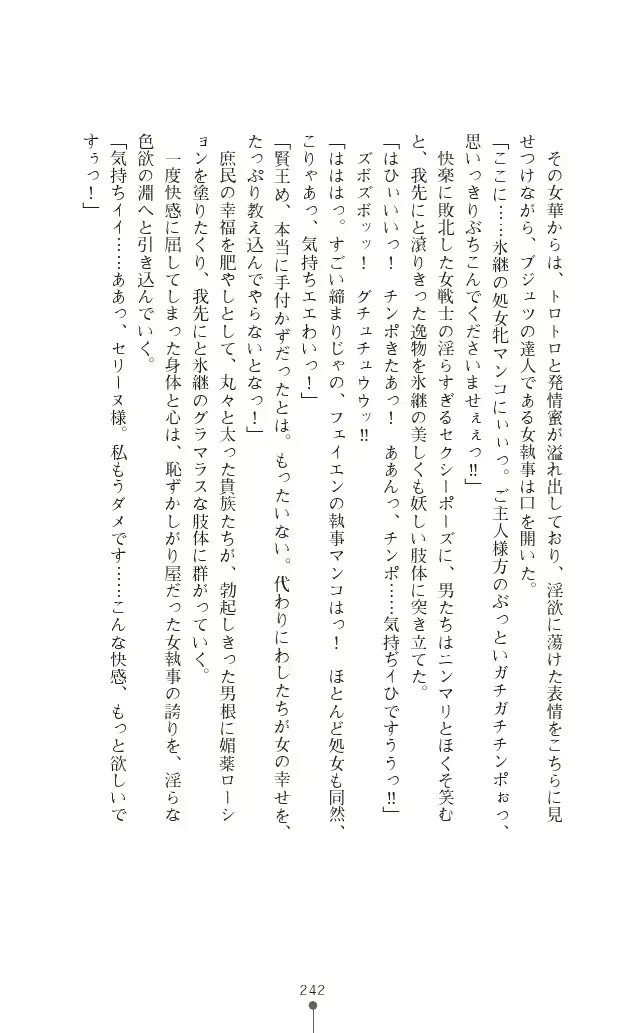 その女華からは、トロトロと発情蜜が溢れ出しており、淫欲に蕩けた表情をこちらに見
せつけながら、ブジュツの達人である女執事は口を開いた。
「ここに……氷継の処女牝マンコにぃぃっ。ご主人様方のぶっといガチガチチンポぉっ、
思いっきりぶちこんでくださいませぇぇっ!!」
快楽に敗北した女戦士の淫らすぎるセクシーポーズに、男たちはニンマリとほくそ笑む
と、我先にと滾りきった逸物を氷継の美しくも妖しい肢体に突き立てた。
「はひぃいいっ！　チンポきたあっ！　ああんっ、チンポ……気持ぢイひですううっ!!」
ズボズボッッ！　グチュチュウウッ!!
「はははっ。すごい締まりじゃの、フェイエンの執事マンコはっ！　ほとんど処女も同然、
こりゃあっ、気持ちエエわいっ！」
「賢王め、本当に手付かずだったとは。もったいない。代わりにわしたちが女の幸せを、
たっぷり教え込んでやらないとなっ！」
庶民の幸福を肥やしとして、丸々と太った貴族たちが、勃起しきった男根に媚薬ローシ
ョンを塗りたくり、我先にと氷継のグラマラスな肢体に群がっていく。
一度快感に屈してしまった身体と心は、恥ずかしがり屋だった女執事の誇りを、淫らな
色欲の淵へと引き込んでいく。
「気持ちイイ……ああっ、セリーヌ様。私もうダメです……こんな快感、もっと欲しいで
すぅっ！」
242